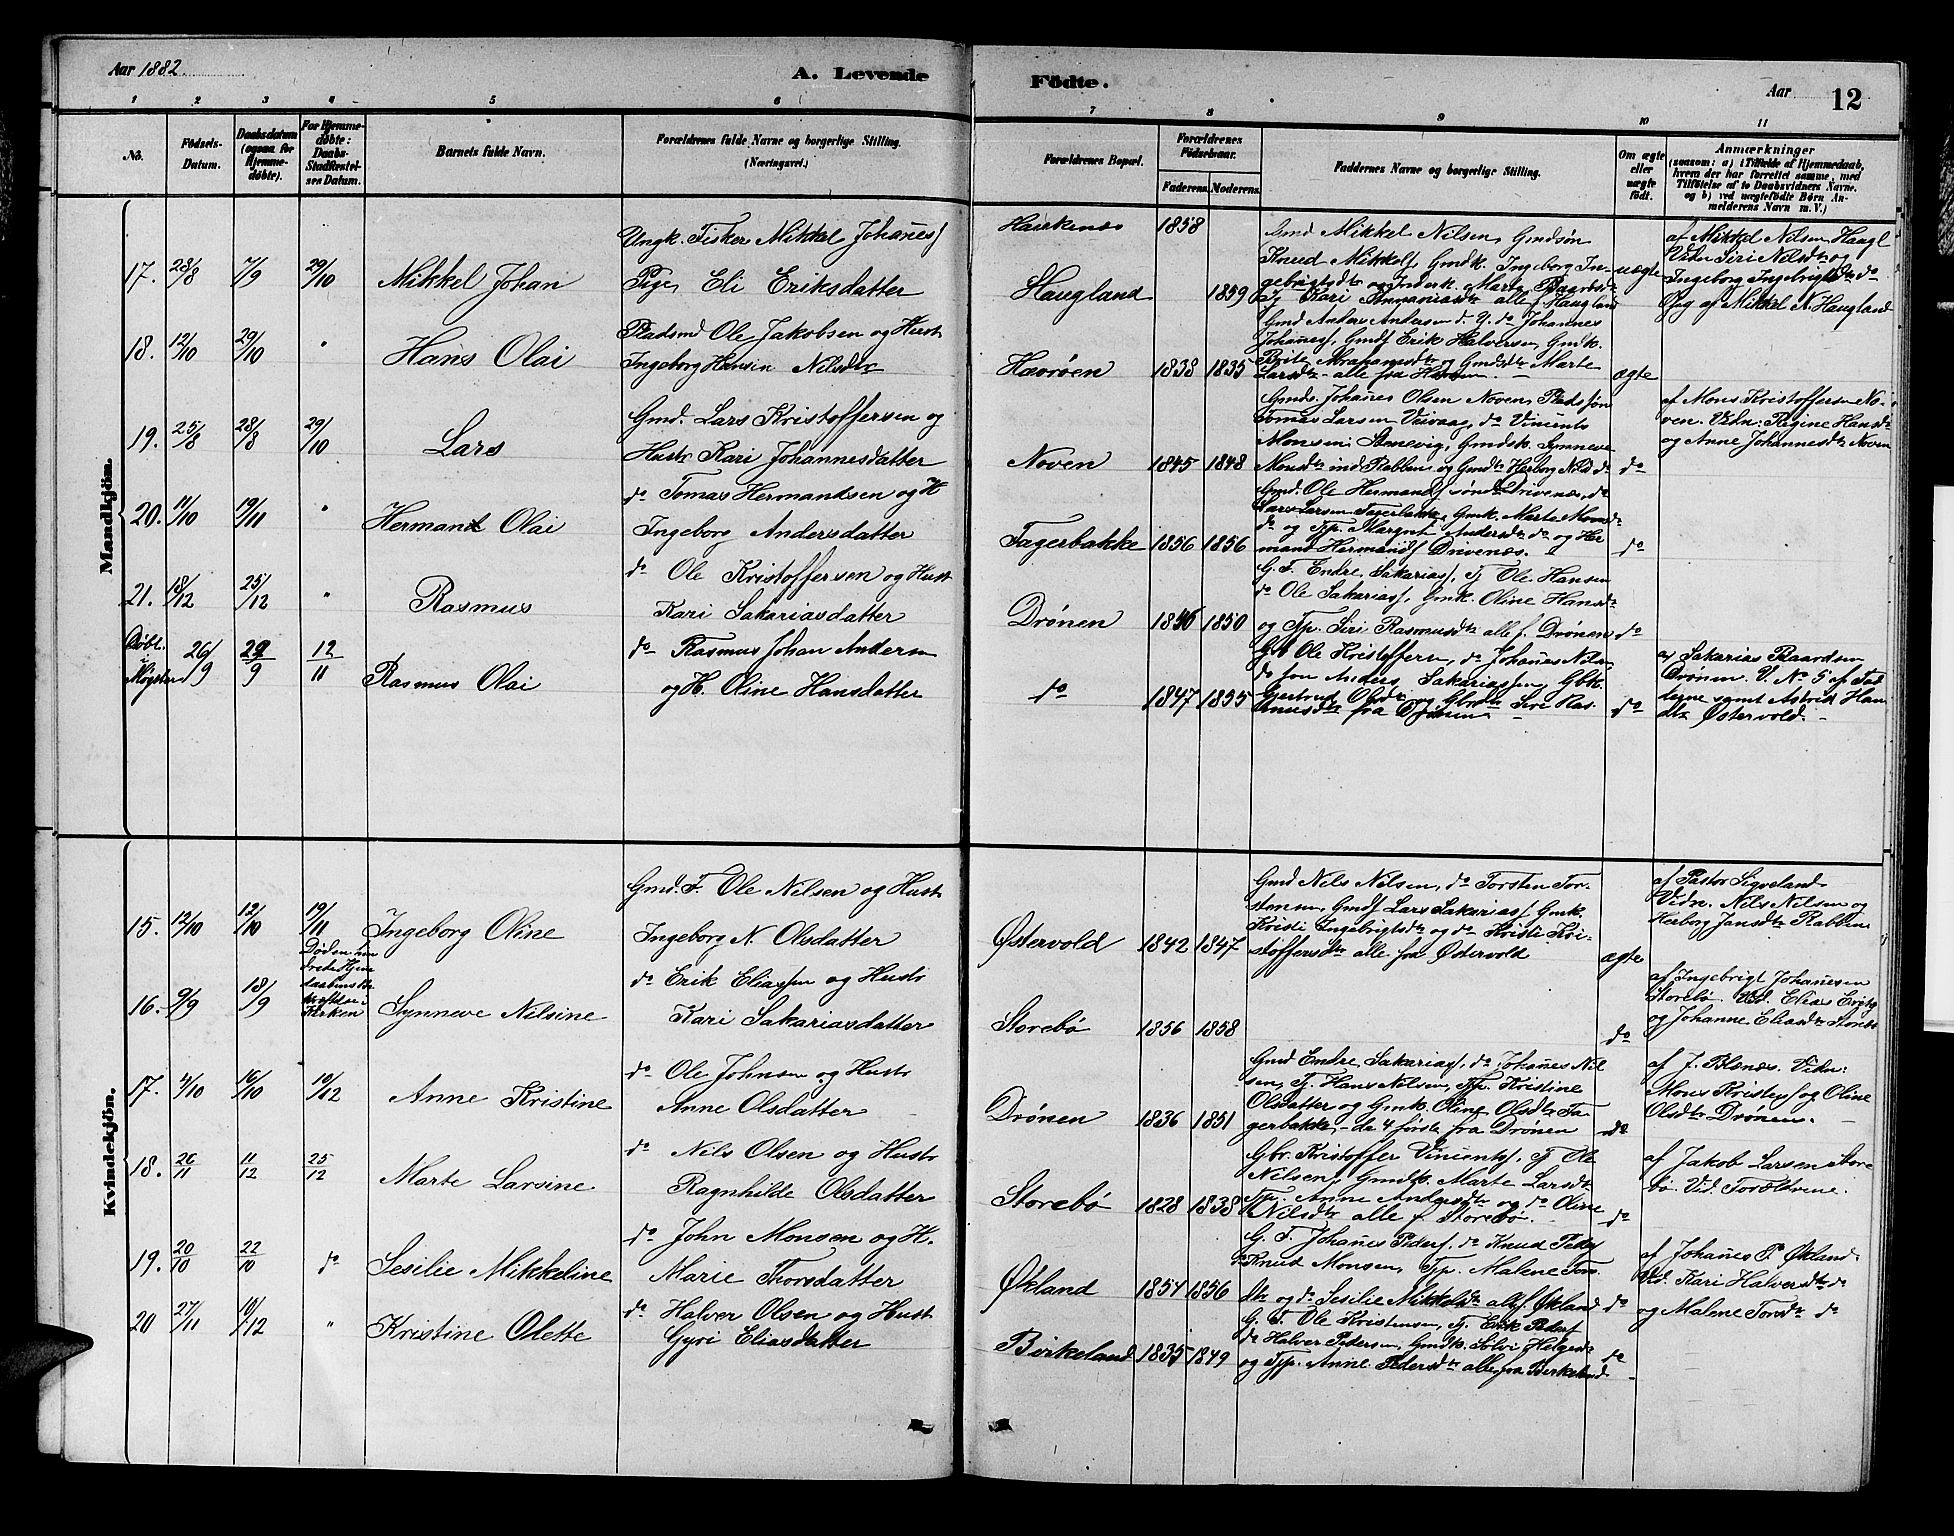 Aar 1882
A. Levende
Födte.
Aar
12
1 2 3 4 5 6 7 8 9 10 11
No.
Födsels-Datum.
Daabsdatum (ogsaa for Hjemme-döbte).
For Hjemme-döbte: Daabs-Stadfæstel-ses Datum.
Barnets fulde Navn.
Forældrenes fulde Navne og borgerlige Stilling. (Næringsvei.)
Forældrenes Bopæl.
Forældrenes Födselsaar.
Faderens.
Moderens.
Faddernes Navne og borgerlige Stilling.
Om ægte eller uægte födt.
Anmærkninger
(saasom: a) i Tilfælde af Hjemmedaab,
hvem der har forrettet samme, med
Tilföielse af to Daabsvidners Navne.
og b) ved uægtefödte Börn An-
melderens Navn m. V.)
Mandkjön.
17. 28/8 7/9 29/10 Mikkel Johan
Ungk. Fisker Mikkel Johanes/
Pige Eli Eriksdatter
Haukenæs 1858
Haugland 1859
Gmd Mikkel Nilsen, Gmdsøn
Knud Mikkels/, Gmdk. Ingeborg In-
gebrigtsdtr og Inderk. Marte Baardsdtr
og Kari Annaniasdtr alle f. Haugland
uægte
af Mikkel Nilsen Haugl
Vidn Siri Nilsdtr og
Ingeborg Ingebrigtsdtr do
Opg af Mikkel N. Haugland
18. 12/10 29/10 " Hans Olai
Pladsmd Ole Jakobsen og Hustr
Ingeborg Hansin Nilsdtr
Havrøen 1838 1835
Gmd Anders Andersen d. Y. do Johannes
Johanes/, Gmds/ Erik Halversen, Gmk.
Brite Abrahamsdtr og Gmdsdtr Marte
Larsdtr – alle fra Havrøen. –
ægte
19. 25/8 28/8 29/10 Lars
Gmd. Lars Kristoffersen og
Hustr Kari Johannesdatter
Noven 1845 1848
Gmds. Johanes Olsen Noven, Pladssøn
Tomas Larsen Vivaag, do Vincents
Monsen Stenevig, Gmdsk. Synneve
Monsdtr ind Rabben og Gmdtr Herborg Nilsd do
do
af Mons Kristoffersen No-
ven. Vidn: Regine Hansdtr
og Anne Johannesdtr Noven
20. 11/10 19/11 " Hermand Olai
do Tomas Hermandsen og H
Ingeborg Andersdatter
Fagerbakke 1856 1856
Gmd. Ole Hermands/ søndr Drivenæs, do
Lars Larsen Fagerbakke, Gmk. Marte Monsdtr
do og Tp. Margret Andersdtr do og Her
mand Hermands/ Drivenæs.
do
21. 18/12 25/12 " Rasmus
do Ole Kristoffersen og Hustr
Kari Sakariasdatter
Drønen 1846 1850
G. F. Endre Sakarias/, Tj Ole Hansen
do Ole Sakarias/, Gmk. Oline Hansdtr
og Tp. Siri Rasmusdtr alle f. Drønen
do
Døbt i Møgster 26/9 29/9 12/11 Rasmus Olai
do Rasmus Johan Andersn
og H. Oline Hansdatter
do 1847 1855
Gb Ole Kristoffersn, do Johanes Nilsn
do søn Anders Sakariassen, Gbk.
Gjertrud Olsdtr og Gbmdtr Siri Ras-
musdtr fra Drønen –
do
af Sakarias Baardsen
Drønen. V. No 5 af Fad
derne samt Astrid Han
sdtr Østervold. –
Kvindekjön.
15. 12/10 12/10 19/11 Ingeborg Oline
Gmd. F. Ole Nilsen og Hustr
Ingeborg N. Olsdatter
Østervold 1842 1847
Gmd Nils Nilsen, do Torsten Tor-
stensen, Gmds/ Lars Sakarias/ Gmk.
Kristi Ingebrigtsdtr og do Kristi Kri-
stoffersdtr alle fra Østervold
ægte
af Pastor Sigveland.
Vidn. Nils Nilsen og
Herborg Jansdtr Rabben
16. 9/9 18/9 Døden hin drede Hjem daabens Be kræftelse i Kirken Synneve Nilsine
do Erik Eliassen og Hustr
Kari Sakariasdatter
Storebø 1856 1858
do
af Ingebrigt Johanesen
Storebø. Vid. Elias
og Johanne Eliasdtr Storebø
17. 4/10 16/10 10/12 Anne Kristine
do Ole Johnsen og Hustr
Anne Olsdatter
Drønen 1836 1851
Gmd Endre Sakarias/, do Johanes Nil
sen, Tj. Hans Nilsen, Tp. Kristine
Olsdatter og Gmk. Oline Olsdtr Fa-
gerbakke – de 4 første fra Drønen
do
af J. Blænes. Vidn:
Mons Kristens/ og Oline
Olsdtr Drønen. –
18. 26/11 11/12 25/12 Marte Larsine
do Nils Olsen og Hustr
Ragnhilde Olsdatter
Storebø 1828 1838
Gbr. Kristoffer Vincents/ Tj Ole
Nilsen, Gmdk. Marte Larsdtr
Tp. Anne Andersdtr og do Oline
Nilsdtr alle f. Storebø. –
do
af Jakob Larsen Store
bø. Vid. Forældrene.
19. 20/10 22/10 do Sesilie Mikkeline
do John Monsen og H.
Marie Thorsdatter
Økland 1854 1856
G. F. Johanes Peders/, do Knud Peders/
Knud Monsen, Tp. Malene Tors
dtr og do Sesilie Mikkelsdtr alle f. Økland
do
af Johanes P. Økland.
Vid. Kari Halversdtr do
og Malene Torsdtr do
20 27/11 10/12 " Kristine Olette
do Halver Olsen og Hustr
Gyri Eliasdatter
Birkeland 1835 1849
G. F. Ole Kristensen, Tj. Erik Peders/
do Halver Pedersen, Gmdk. Solvi Helgesdtr
og Tp. Anne Pedersdtr alle fra Birkeland
do